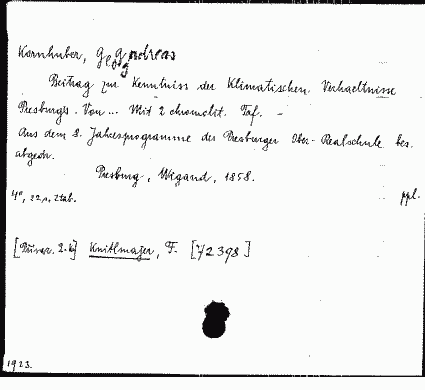 Kornhuber, G. Andreas
Beitrag zur Kenntniss der Klimatischen Verhaeltnisse
Presburgs. Von ... Mit 2 chromolit. Taf. -
Aus dem 8. Jahresprogramme der Presburger Ober-Realschule bes.
abgedr.
Presburg, Wigand, 1858.
4°, 22 p. 2 tab. ppl.
Knitlmayer, F. [72398]
1923.